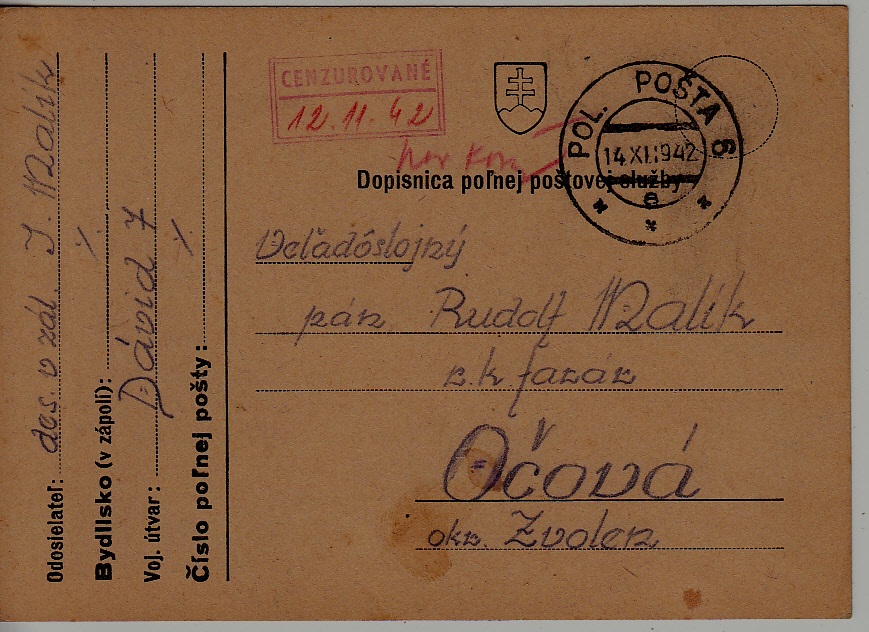 CENZUROVANÉ
12.11.42
POL. POŠTA 6
14 XI.1942
e
Dopisnica poľnej poštovej služby
Veľadôstojný
pán Rudolf Malík
r.k. farár
Očová
okr. Zvolen
Odosielateľ: des. v zál. J. Malík
Bydlisko (v zápolí): %
Voj. útvar: Dávid 7
Číslo poľnej pošty: %